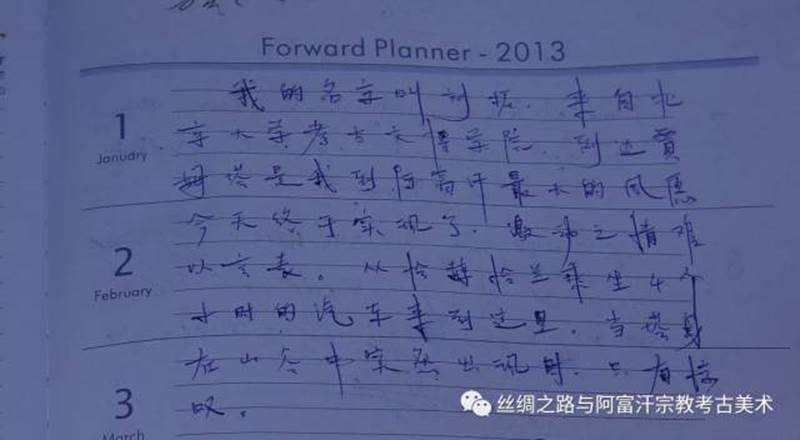 Forward Planner - 2013
我的名字叫刘拓，来自北
1 京大学考古文博学院，到达贾
January
姆塔是我到阿富汗最大的夙愿
今天终于实现了，激动之情难
2 以言表。从恰赫恰兰乘坐4个
February
小时的汽车来到这里，当塔身
在山谷中突然出现时，只有惊
3 叹。
March
丝绸之路与阿富汗宗教考古美术